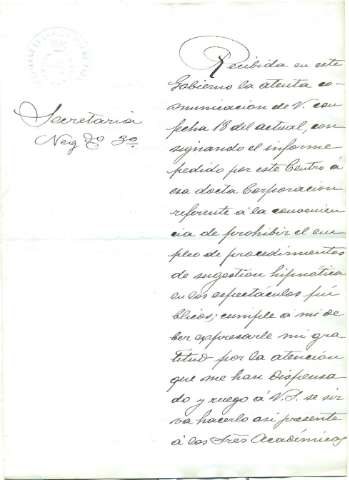 Secretaria
Neg.do 3º
Recibida en este
Gobierno la atenta co-
municacion de V. con
fecha 18 del actual, con
signando el informe
pedido por este Centro á
esa docta Corporacion
referente á la convenien
cia de prohibir el em
pleo de procedimientos
de sugestion hipnotica
en los espectáculos pú
blicos; cumple á mi de
ber expresarle mi gra
titud por la atencion
que me han dispensa
do y ruego á V.S. se sir
va hacerlo asi presente
á los Sres Académicos